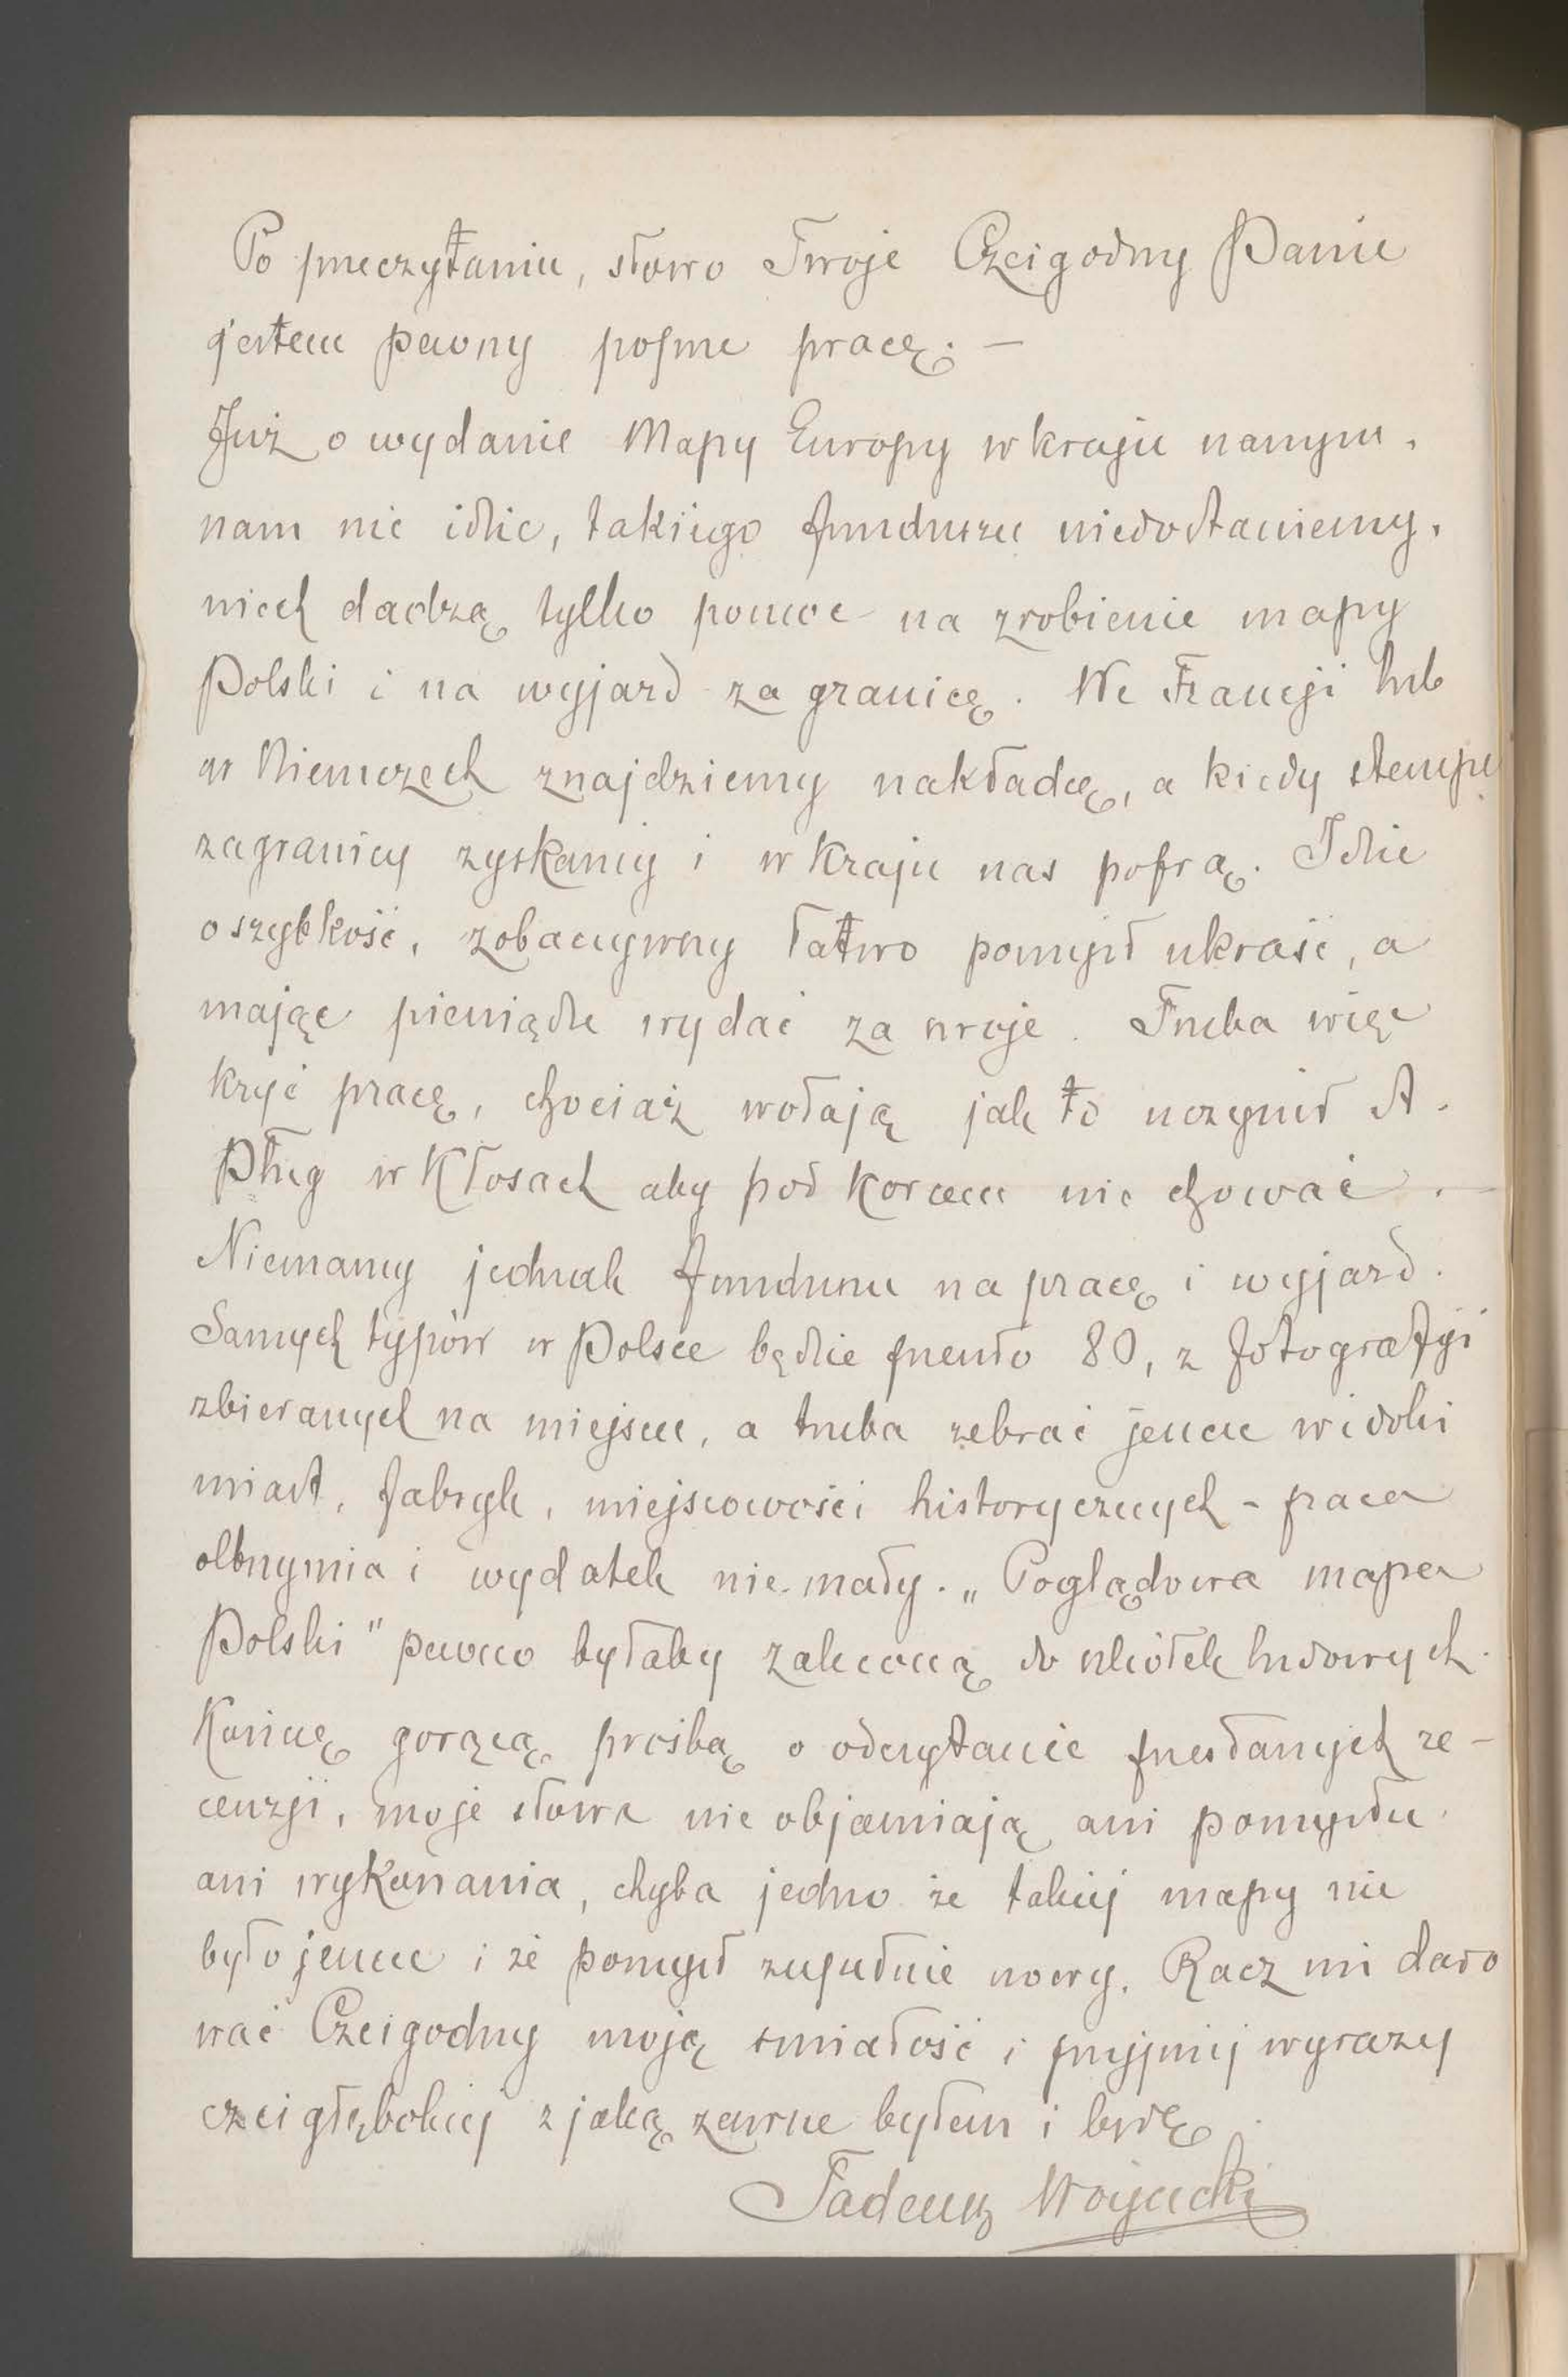 Po przeczytaniu, słowo Twoje Czcigodny Panie
jestem pewny poprze pracę. —
Już o wydanie Mapy Europy w kraju naszym,
nam nie idzie, takiego funduszu niedostaniemy,
niech dadzą tylko pomoc na zrobienie mapy
Polski i na wyjazd za granicę. We Francji lub
w Niemczech znajdziemy nakładcę, a kiedy stempel
zagranicy zyskamy i w kraju nas poprą. Idzie
o szybkość, zobaczywszy łatwo pomysł ukraść, a
mając pieniądze wydać za swoje. Trzeba więc
kryć pracę, chociaż wołają jak to uczynił A.
Pług w Kłosach aby pod korcem nie chować. —
Niemamy jednak funduszu na pracę i wyjazd.
Samych typów w Polsce będzie przeszło 80, z fotografji
zbieranych na miejscu, a trzeba zebrać jeszcze widoki
miast, fabryk, miejscowości historycznych - praca
olbrzymia i wydatek nie mały. „Poglądowa mapa
Polski" pewno byłaby zaleconą do szkółek ludowych.
Kończę gorącą prośbą o odczytanie przesłanych re-
cenzji, moje słowa nie objaśniają ani pomysłu
ani wykonania, chyba jedno że takiej mapy nie
było jeszcze i że pomysł zupełnie nowy. Racz mi daro
wać Czcigodny moją śmiałość i przyjmij wyrazy
czci głębokiej z jaką zawsze byłem i będę.
Tadeusz Wojcicki